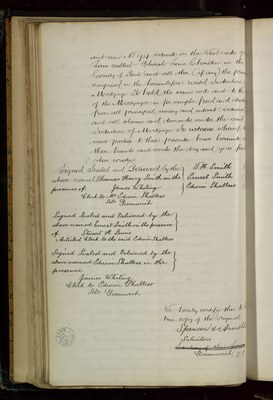 and nine No 94 situate on the West side of
Town called
County of Kent and all other (if any) the prem
comprised in the hereinbefore recited Indenture
Mortgage To hold the same unto and to the
of the Mortgagor in fee simple freed and
from all principal money and interest secured
and all claims and demands under the said
Indenture of Mortgage In witness whereof
said parties to these presents have hereunto
their hands and seals the day and year first
above written
Signed Sealed and Delivered by the
above named Thomas Henry Smith in the
presence of
James Whiting
Clerk to Mr Edwin Shalless
Solr Greenwich
T. H. Smith
Ernest Smith
Edwin Shalless
Signed Sealed and Delivered by the
above named Ernest Smith in the presence
of
Stuart A. Lewis
Articled Clerk to the said Edwin Shalless
Signed Sealed and Delivered by the
above named Edwin Shalless in the
presence
James Whiting
Clerk to Edwin Shalless
Solr Greenwich
We hereby certify this to
true copy of the original
Spencer
Solicitors
Greenwich